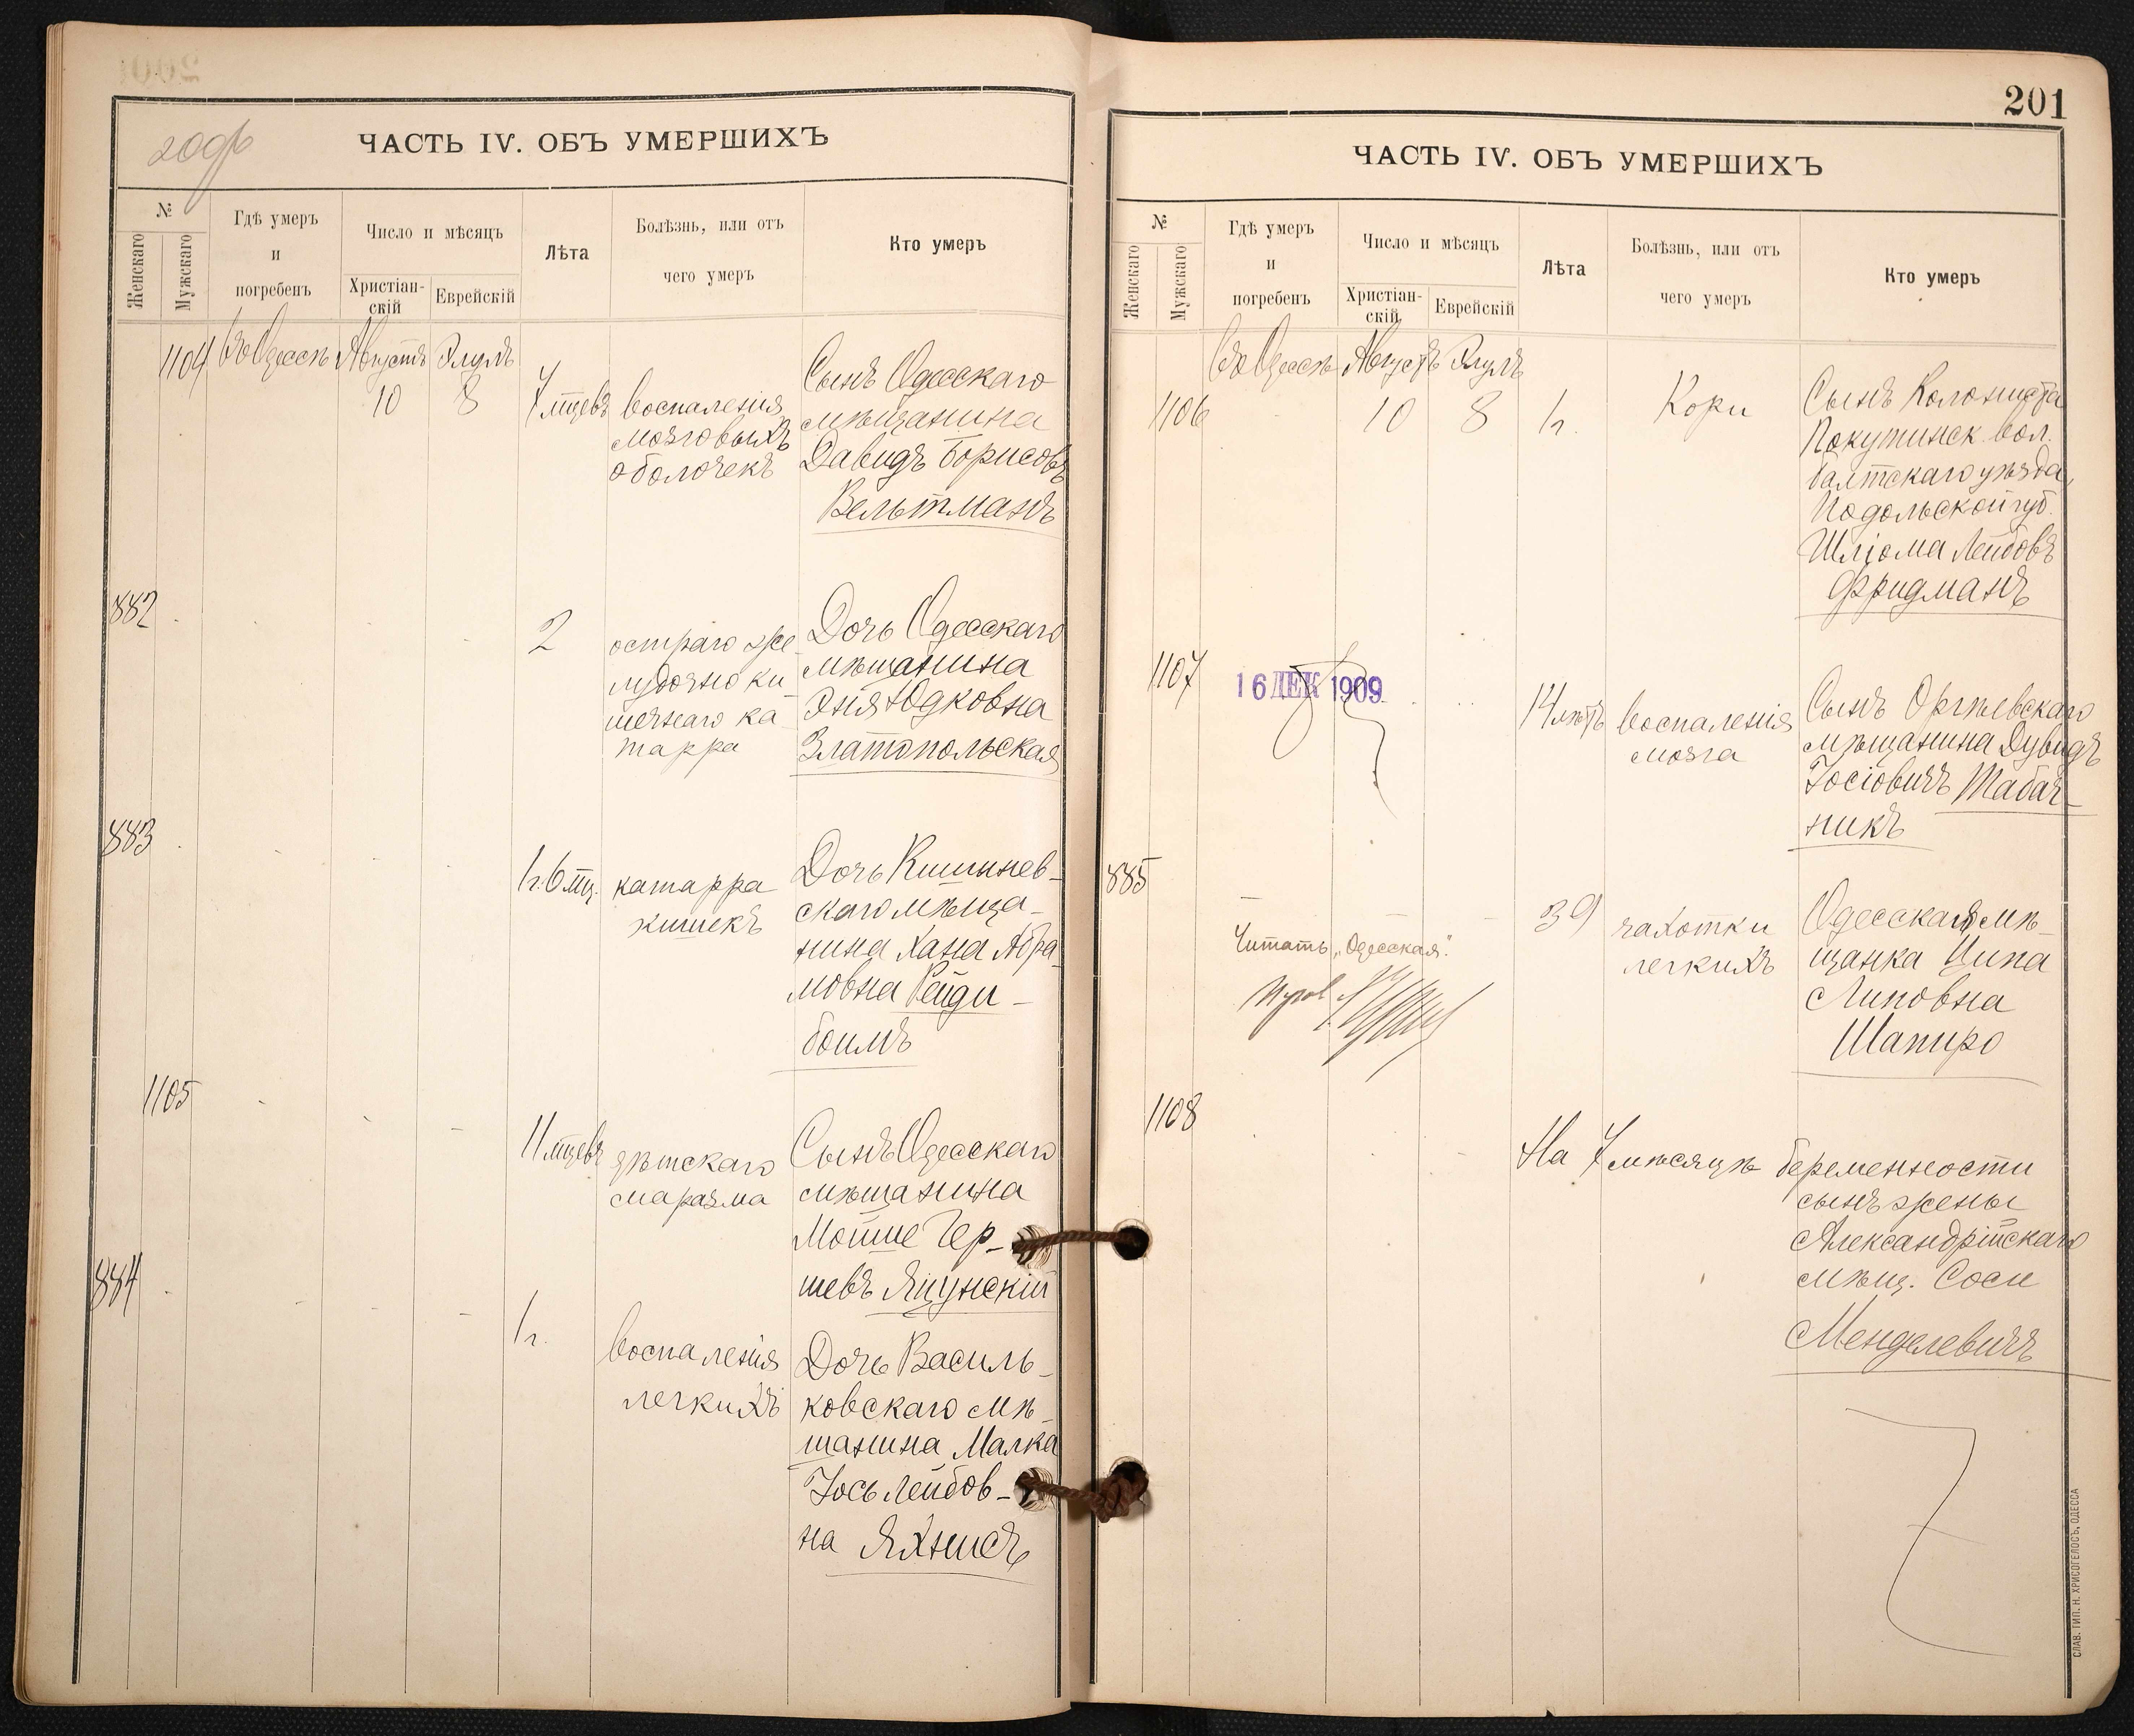 годъ
ЧАСТЬ IV. ОБЪ УМЕРШИХЪ
№
Женскаго
Мужскаго
Гдѣ умеръ
и
погребенъ
Число и мѣсяцъ
Христіан-
скій
Еврейскій
Лѣта
Болѣзнь, или отъ
чего умеръ
Кто умеръ
1104
Въ Одессѣ
Августъ
10
Элулъ
8
7 мцевъ
воспаленія
мозговыхъ
оболочекъ
Сынъ Одесскаго
мѣщанина
Давидъ Борисовъ
Вельтманъ
882
2
остраго же-
лудочно ки-
шечнаго ка-
тарра
Дочь Одесскаго
мѣщанина
Эня Юдковна
Златопольская
883
1 г. 6 мц.
катарра
кишекъ
Дочь Кишинев-
скаго мѣща-
нина Хана Абра-
мовна Рейди-
боимъ
1105
11 мцевъ
дѣтскаго
маразма
Сынъ Одесскаго
мѣщанина
Мойше Гер-
шевъ Яцунскій
884
1 г.
воспаленія
легкихъ
Дочь Василь-
ковскаго мѣ-
щанина Малка
Іось Лейбов-
на Яхнисъ
201
ЧАСТЬ IV. ОБЪ УМЕРШИХЪ
№
Женскаго
Мужскаго
Гдѣ умеръ
и
погребенъ
Число и мѣсяцъ
Христіан-
скій
Еврейскій
Лѣта
Болѣзнь, или отъ
чего умеръ
Кто умеръ
1106
Въ Одессѣ
Августъ
10
Элулъ
8
1 г.
Кори
Сынъ Колониста
Покутинск. вол.
Балтскаго уѣзда,
Подольской губ.
Шліома Лейбовъ
Фридманъ
1107
16 ДЕК 1909
14 лѣтъ
воспаленія
мозга
Сынъ Оргѣевскаго
мѣщанина Дувидъ
Іосіовичъ Табач-
никъ
885
Читать „Одесская".
39
чахотки
легкихъ
Одесская мѣ-
щанка Ципа
Липовна
Шапиро
1108
На 7 мѣсяцѣ беременности
сынъ жены
Александрійскаго
мѣщ. Соси
Менделевичъ
СЛАВ. ТИП. Н. ХРИСОГЕЛОСЪ, ОДЕССА